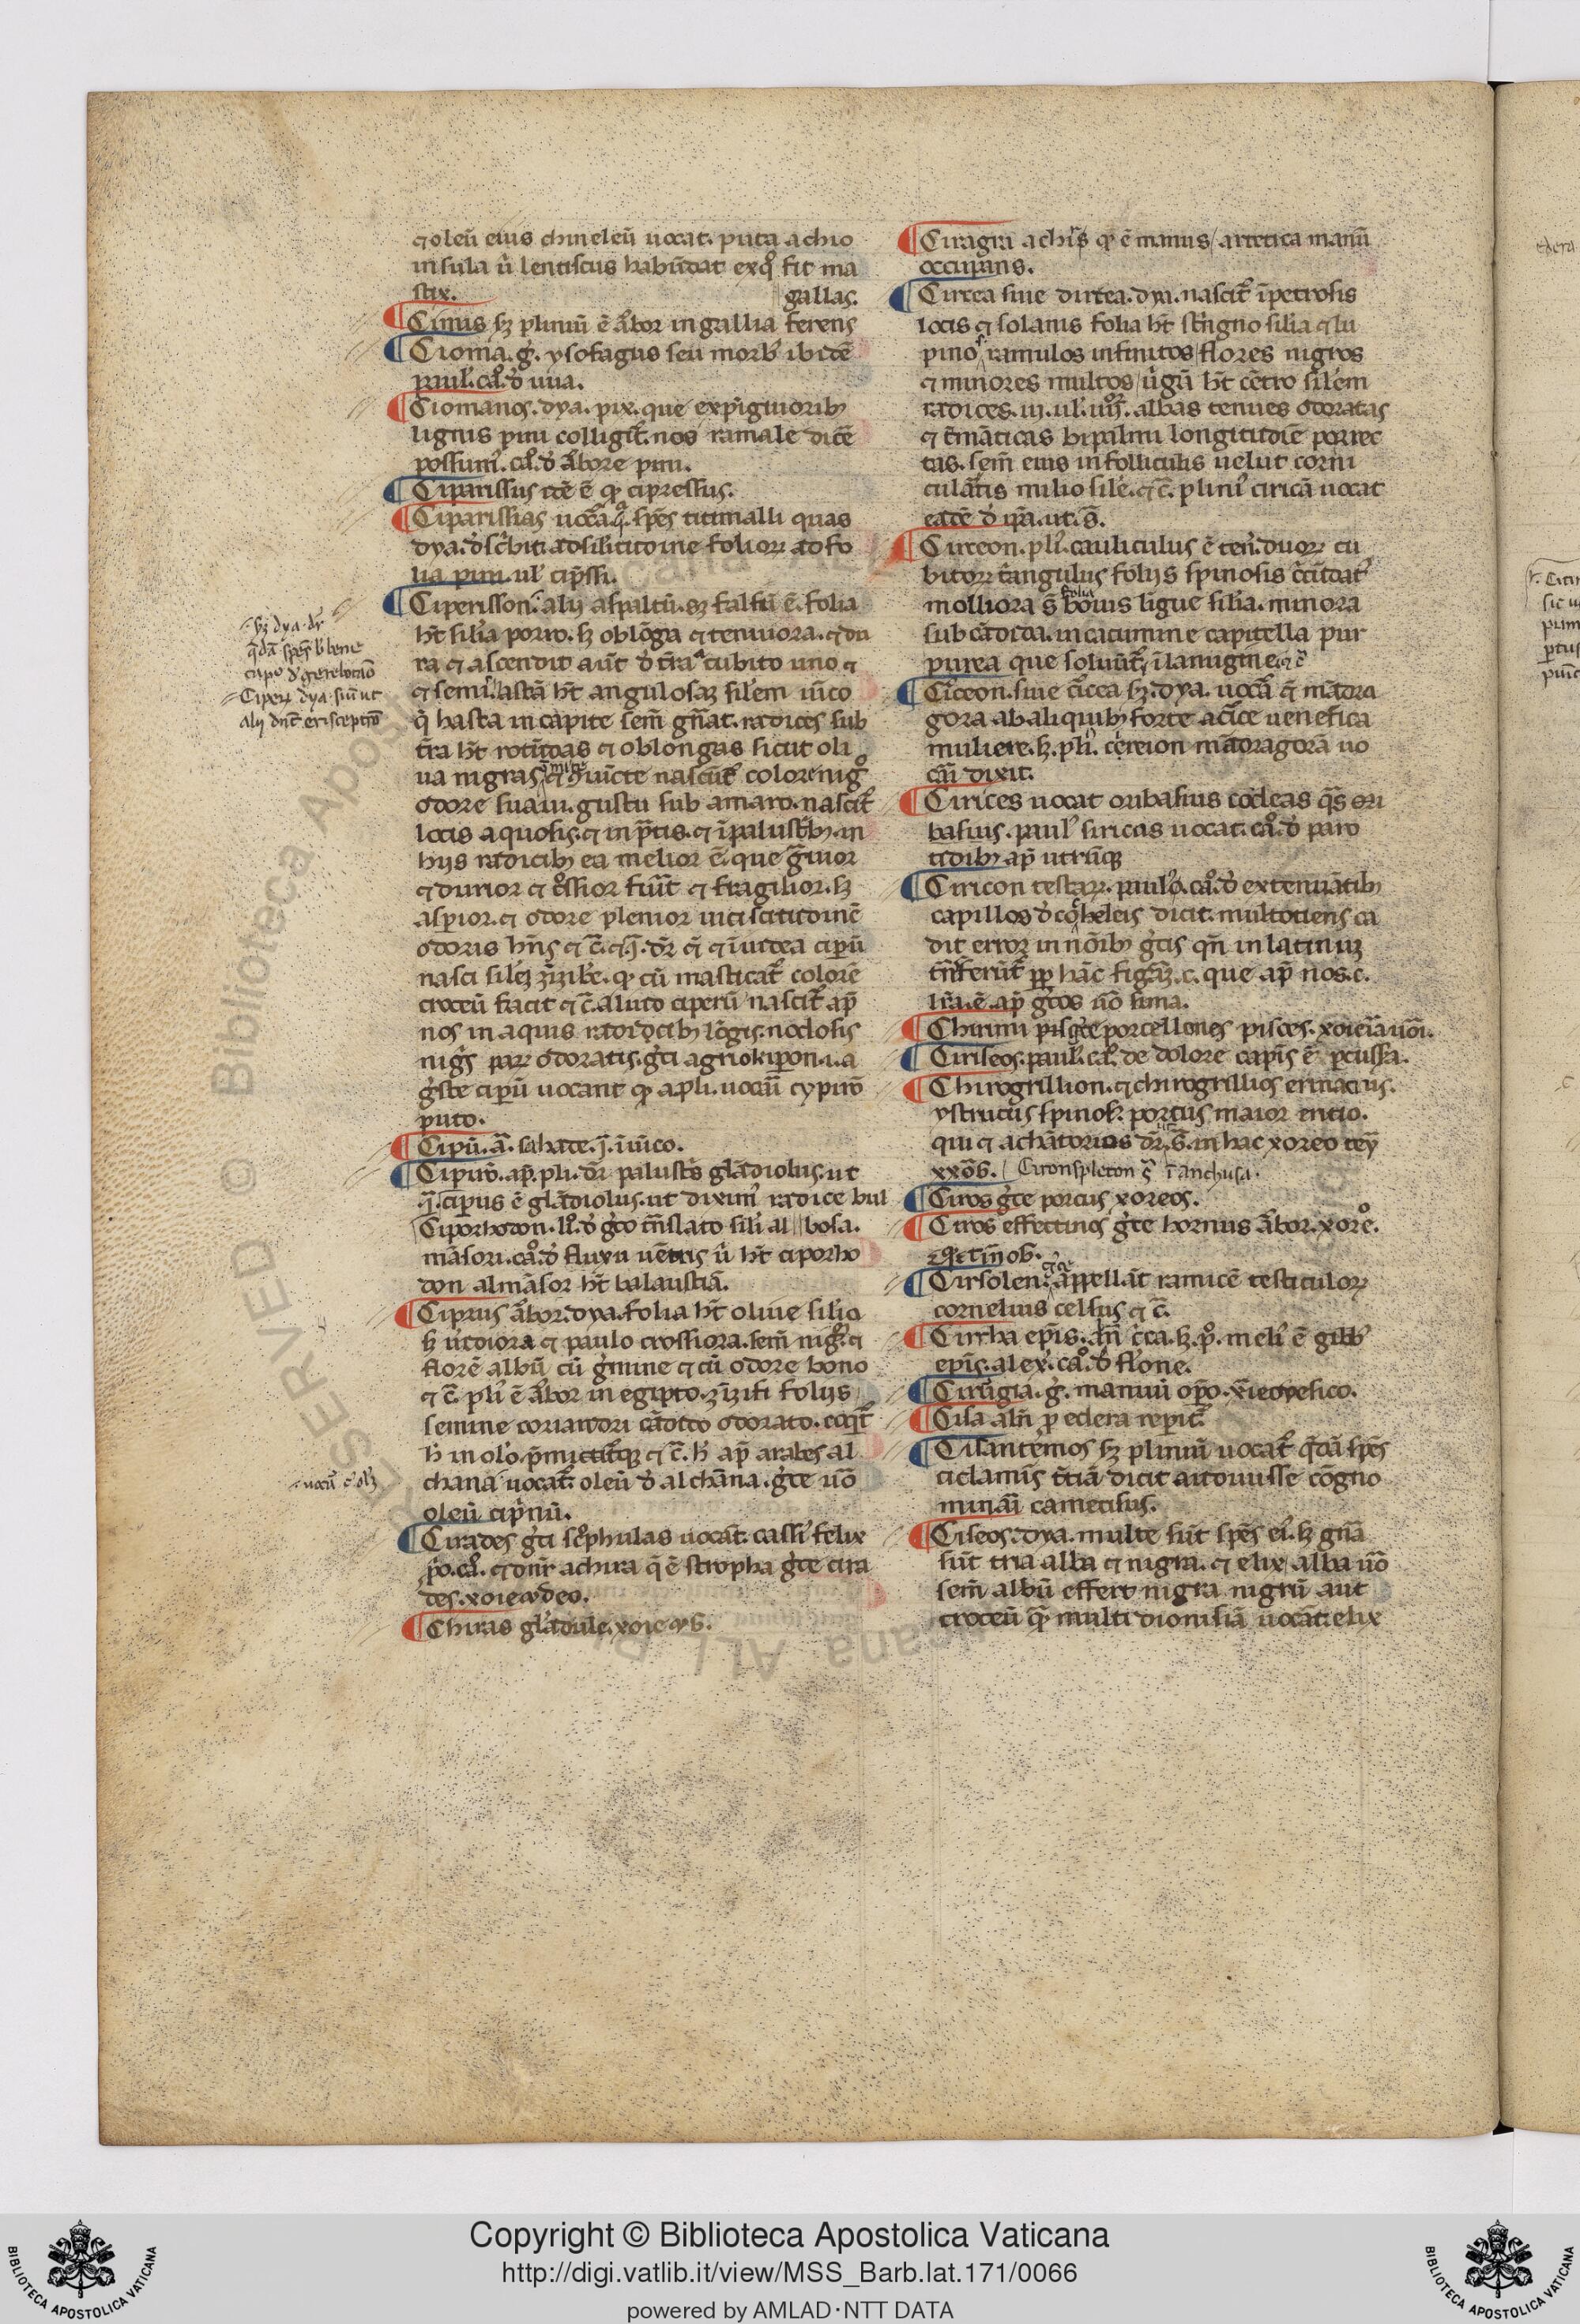 ⁊ oleū eius chineleū uocat. puta a chio
insula ū lentiscus habūdat ex qͦ fit ma
stix. gallas.
Cinus ẜꝫ pliniū ē ab̄or in gallia ferens
Cioma. g̊. ysofagus seu morb̾ ibidē
paul̾. ca̾. d̾ uua.
Ciomanos. dya. pix. que ex pīguiorib;
lignis pini colligit̾. nos ramale dic̄e
possum̾. ca̾. d̾ ab̄ore pini.
Ciparissus idē ē qͥ cipressus.
Ciparissias uoca̾. sp̄es titimalli quas
dya. d̾sc̾bit. ad silitudine folioꝝ ad fo
lia pini. ul̾ cip̄ssi.
Ciperisson. alij aspaltū. sꝫ falsū ē. folia
ht̄ sil̾ia porro. sꝫ oblōga ⁊ tenuiora. ⁊ du
ra ⁊ ascendit aūt d̾ tr̄a cubito uno ⁊
⁊ semi. astā ht̄ angulosaꝫ sil̾em iūco
q̄ hasta in capite sem̄ gn̄at. radices sub
tr̄a ht̄ rotūdas ⁊ oblongas sicut oli
ua nigras ⁊ 9iūcte nascūt̾ colore nigͦ
odore suaui. gustu sub amaro. nascit̾
locis aquosis. ⁊ in p̄tis. ⁊ ī palustrib; in
hijs radicib; ea melior ē. que g̾uior
⁊ durior ⁊ gͦssior fiūt ⁊ fragilior. sꝫ
asp̄ior. ⁊ odore plenior uiciscitudinē
odoris hn̄s ⁊ c̄. ⁊ j̄. dr̄ ⁊ ī iudea cip̄ū
nasci sil̾eꝫ zīzibe̾. qͥ cū masticat̾ colorē
croceū facit ⁊ c̄. aliud ciperū nascit̾ ap̄
nos in aquis radicib; lōgis. nodosis
nigͥs paꝝ odoratis. gͥci agriokipon .i. a
gͥste cip̄ū uocant qͥ a pli. uocū cypirō
puto.
Cipū. a̾. sahade. j̄. iūco.
Cipirō. ap̄. pli. dr̄ palustͥs glādiolus. ut
j̄. cip̄us ē glādiolus. ut diximꝰ radice bul
Ciporhodon. li̾. d̾ gͥco trāslato sil̾i al bosa.
māsori. ca̾. d̾ fluxu uētris ū ht̄ ciporho
don almāsor ht̄ balaustiā.
Ciprus ab̄or. dya. folia ht̄ oliue sil̾ia
sꝫ uͥdiora ⁊ paulo crossiora. sem̄ nigͦ. ⁊
florē albū cū gͥmine ⁊ cū odore bono
⁊ c̄. pli̾ ē ab̄or in egipto. zīzifi folijs
semine coriandri cādido odorato. coqͥt̾
h̾ in olō. p̄mictit̾qꝫ ⁊ c̄. h̾ ap̄ arabes al
chana uocat̾. oleū d̾ alchāna. gͥce uō
oleū cipͥnū.
Cirades gͥci scͦphulas uocāt. cassi̾ felix
pͦ. ca̾. ⁊ dīr̄ a chira q̄ ē stropha gͥce cira
des. xoiewdeo.
Chiras glādule. xoie
Ciragra a chiͥs qͥ ē manus / artetica manū
occupans.
Circea siue dircea. dya. nascit̾ ī petrosis
locis ⁊ solanis folia ht̄ stͥgno sil̾ia ⁊ lu
pino / ramulos infinitos / flores nigros
⁊ minores multos / uͥgū ht̄ cētro sil̾em
radices. iij. ul̾. iiijͦʳ. albas tenues odoratas
⁊ c̄māticas bipalmi longitudīe porrec
tas. sem̄ eius in folliculis uelut corni
culātis milio sil̾e. ⁊ c̄. plini̾ ciricā uocat
eādē d̾ qͣ. ut. s̄.
Circeon. pli̾. cauliculus ē ten̾. duoꝝ cu
bitoꝝ tͥangulus folijs spinosis cͥcūdat̾
molliora s̄ folia bouis ligue sil̾ia. minora
subcādida. in cacumine capitella pur
purea que soluūt̾ ī lanugine ⁊ c̄
Ciͥceon. siue ciͥcea sꝫ. dya. uoca̾ ⁊ mādra
gora ab aliquib; forte a ciͥce uenefica
muliere. sꝫ. pli̾. cereion mādragorā uo
cari dixit.
Cirices uocat oribasius cocleas qͣs ori
basius. paul̾ siricas uocat. ca̾. d̾ paro
tidib; ap̄ utrūqꝫ
Ciricon testaꝝ. paulo. ca̾. d̾ extenuātib;
capillos d̾ cocheleis dicit. multotiens ca
dit erroꝛ in nōib; gͥcis qn̄ in latinuꝫ
tn̄sferūt̾ ꝓp̄ hāc figͣꝫ. c. que ap̄ nos. c.
lr̄a. ē. ap̄ gͥcos uō sima.
Chirini pisgͥce porcellones pisces. xoieīauōi.
Ciriseos. paul̾. ca̾. de dolore capitis ē ꝑcussa.
Chirogrillion. ⁊ chirogrillios erinacius.
ystricus spinosꝰ porcus maior ericio.
qui ⁊ achātorios dr̄. s̄. in hac xoreo tey
xxōs. Cironspleton s̄ ī anchusa.
Ciros gͥce porcus xoreos.
Ciros effectinos gͥce hornus ab̄or. xoreͦ.
Cirsolen gͥce appellāt ramicē testiculoꝝ
cornelius celsus ⁊ c̄.
Cirrha epīs. hn̄ cͥca. sꝫ. pͦ. meli̾ ē gibb̾
epīs. alex̾. ca̾. d̾ fl̾one.
Cirūgia. g̊. manuū opͦo. xīieopesico.
Cisa aln̄ p edera rep̄it̾.
Cisantēmos sꝫ pliniū uocat̾ qͣdā sp̄es
ciclamīs tͥciā dicit audouisse cōgno
minari camecisus.
Ciseos. dya. multe sūt sp̄es ei̾. sꝫ gn̄a
sūt tria alba ⁊ nigra. ⁊ elix alba uō
sem̄ albū effert nigra nigrū aut
croceū qͣ multi dionisiā uocāt. elix
sꝫ dya. dr̄
Ciperꝝ dya. sicut
alij dn̄t erisceptrō
Copyright © Biblioteca Apostolica Vaticana
http://digi.vatlib.it/view/MSS_Barb.lat.171/0066
powered by AMLAD·NTT DATA
BIBLIOTECA APOSTOLICA VATICANA
BIBLIOTECA APOSTOLICA VATICANA